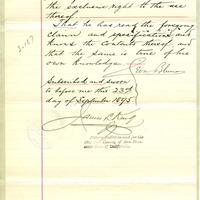 the exclusive right to the use
thereof.
That he has read the foregoing
claim and specifications and
knows the contents thereof, and
that the same is true of his
own knowledge.
Subscribed and sworn
to before me this 23rd
day of September 1895
James R. King